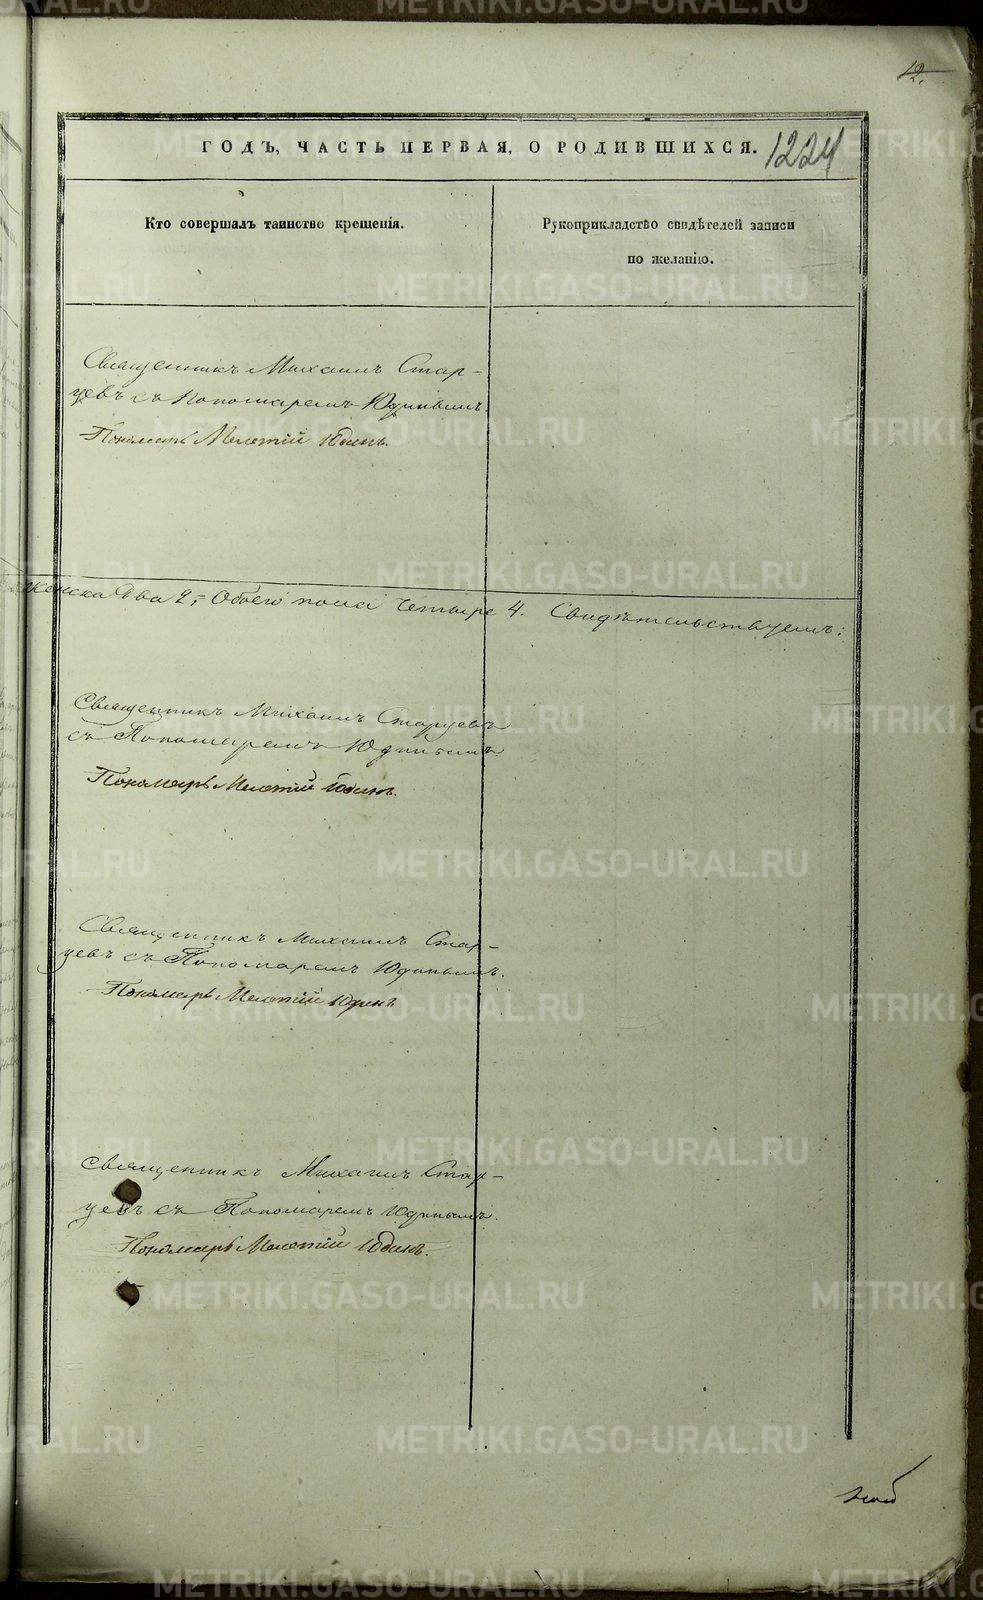 12.
ГОДЪ, ЧАСТЬ ПЕРВАЯ, О РОДИВШИХСЯ.
1224
Кто совершалъ таинство крещенія.
Рукоприкладство свидѣтелей записи
по желанію.
Священникъ Михаилъ Стар-
цевъ съ Пономаремъ Юдинымъ
Пономарь Мелетій Юдинъ.
женска два 2,= Обоего пола четыре 4. Свидѣтельствуемъ:
Священникъ Михаилъ Старцевъ
съ Пономаремъ Юдинымъ.
Пономарь Мелетій Юдинъ.
Священникъ Михаилъ Стар-
цевъ съ Пономаремъ Юдинымъ.
Пономарь Мелетій Юдинъ
Священникъ Михаилъ Стар-
цевъ съ Пономаремъ Юдинымъ.
Пономарь Мелетій Юдинъ.
METRIKI.GASO-URAL.RU